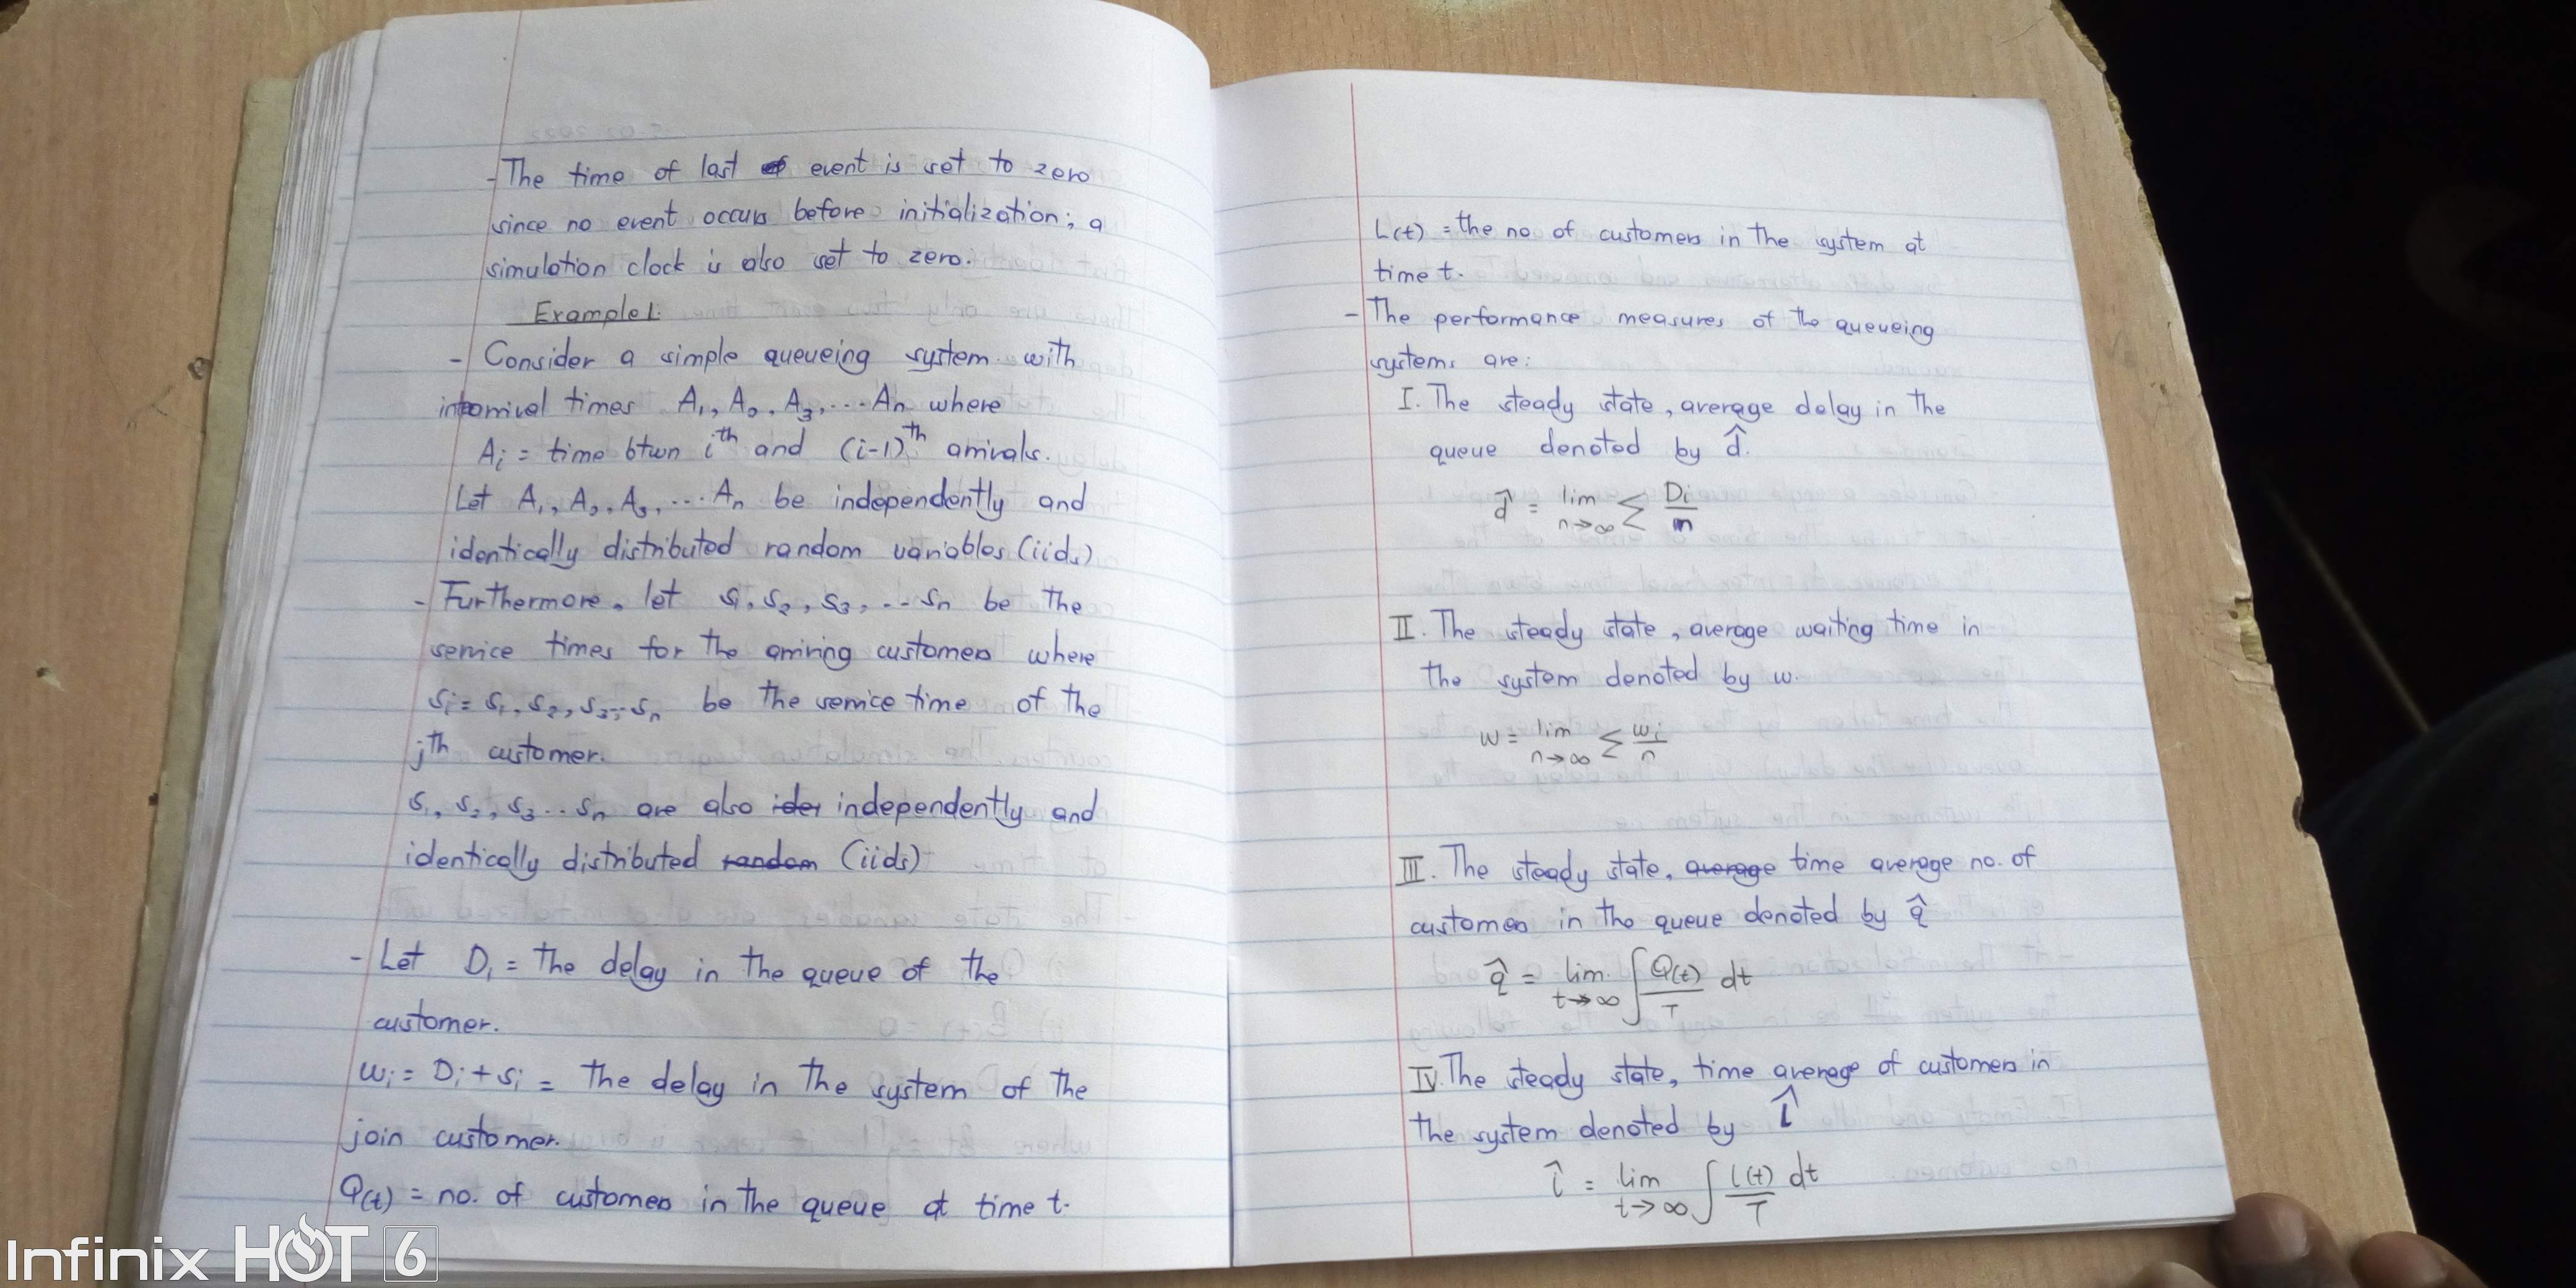 - The time of last event is set to zero
since no event occurs before initialization; a
simulation clock is also set to zero.
Example 1:
- Consider a simple queueing system with
interarrival times A₁, A₂, A₃, ... Aₙ where
Aᵢ = time btwn iᵗʰ and (i-1)ᵗʰ arrivals.
Let A₁, A₂, A₃, ... Aₙ be independently and
identically distributed random variables (iids)
- Furthermore, let S₁, S₂, S₃, ... Sₙ be the
service times for the arriving customers where
Sᵢ = S₁, S₂, S₃, ... Sₙ be the service time of the
jᵗʰ customer.
S₁, S₂, S₃ ... Sₙ are also independently and
identically distributed random (iids)
- Let Dᵢ = the delay in the queue of the
customer.
Wᵢ = Dᵢ + Sᵢ = the delay in the system of the
join customer.
Q(t) = no. of customers in the queue at time t.
L(t) = the no. of customers in the system at
time t.
- The performance measures of the queueing
systems are:
I. The steady state, average delay in the
queue denoted by d̂.
d̂ = lim n→∞ Σ Dᵢ/n
II. The steady state, average waiting time in
the system denoted by w.
w = lim n→∞ Σ wᵢ/n
III. The steady state, average time average no. of
customers in the queue denoted by q̂
q̂ = lim t→∞ ∫ Q(t)/T dt
IV. The steady state, time average of customers in
the system denoted by l̂
l̂ = lim t→∞ ∫ L(t)/T dt
Infinix HOT 6